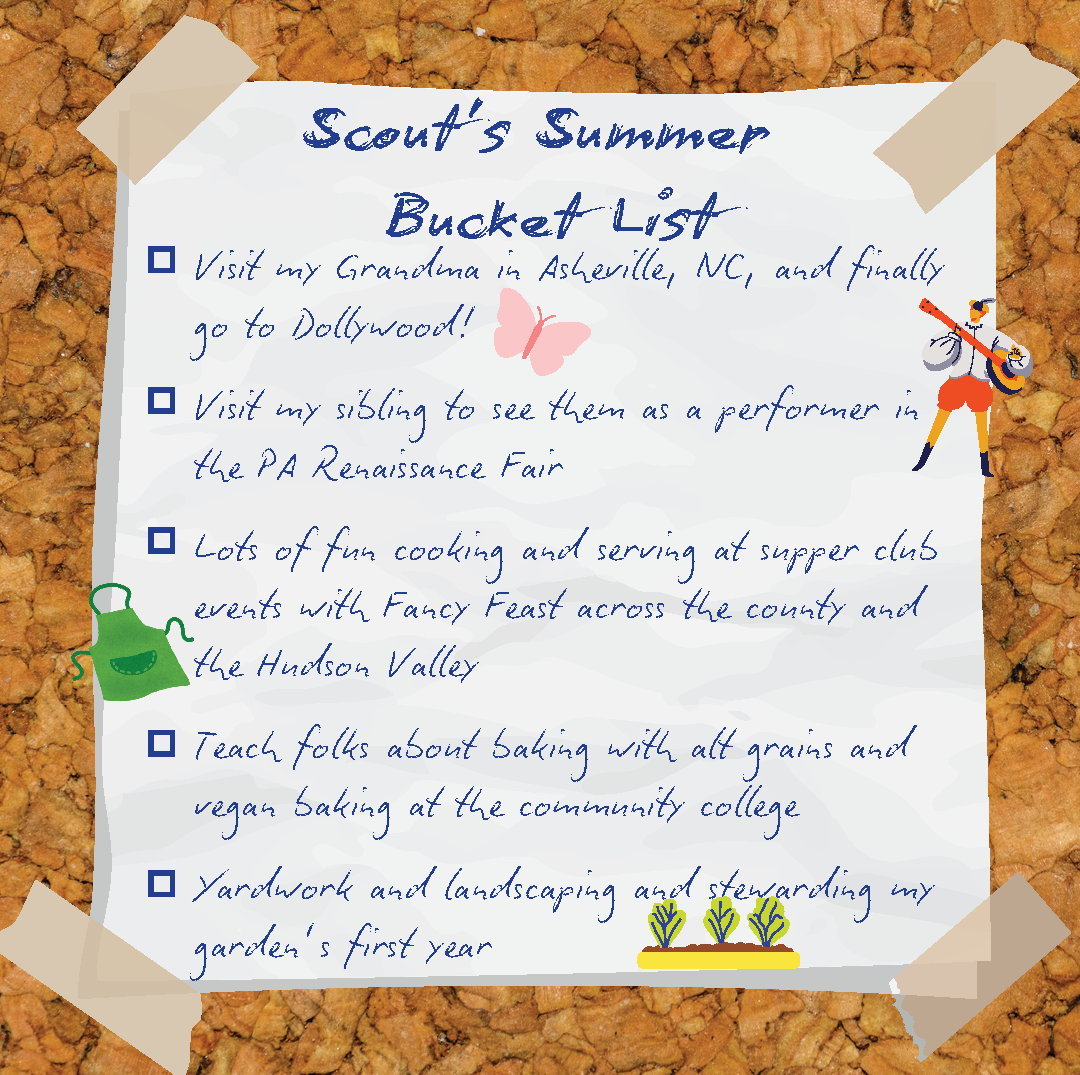 Scout's Summer
Bucket List
Visit my Grandma in Asheville, NC, and finally
go to Dollywood!
Visit my sibling to see them as a performer in
the PA Renaissance Fair
Lots of fun cooking and serving at supper club
events with Fancy Feast across the county and
the Hudson Valley
Teach folks about baking with alt grains and
vegan baking at the community college
Yardwork and landscaping and stewarding my
garden's first year